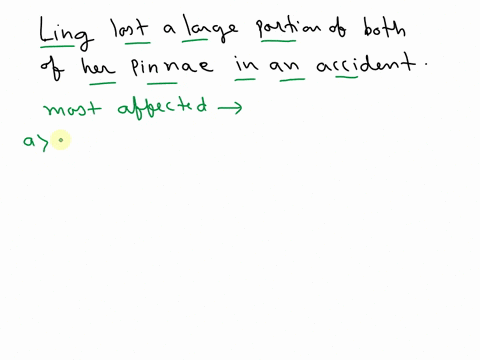 Ling lost a large portion of both
of her pinnae in an accident.
most affected →
a>